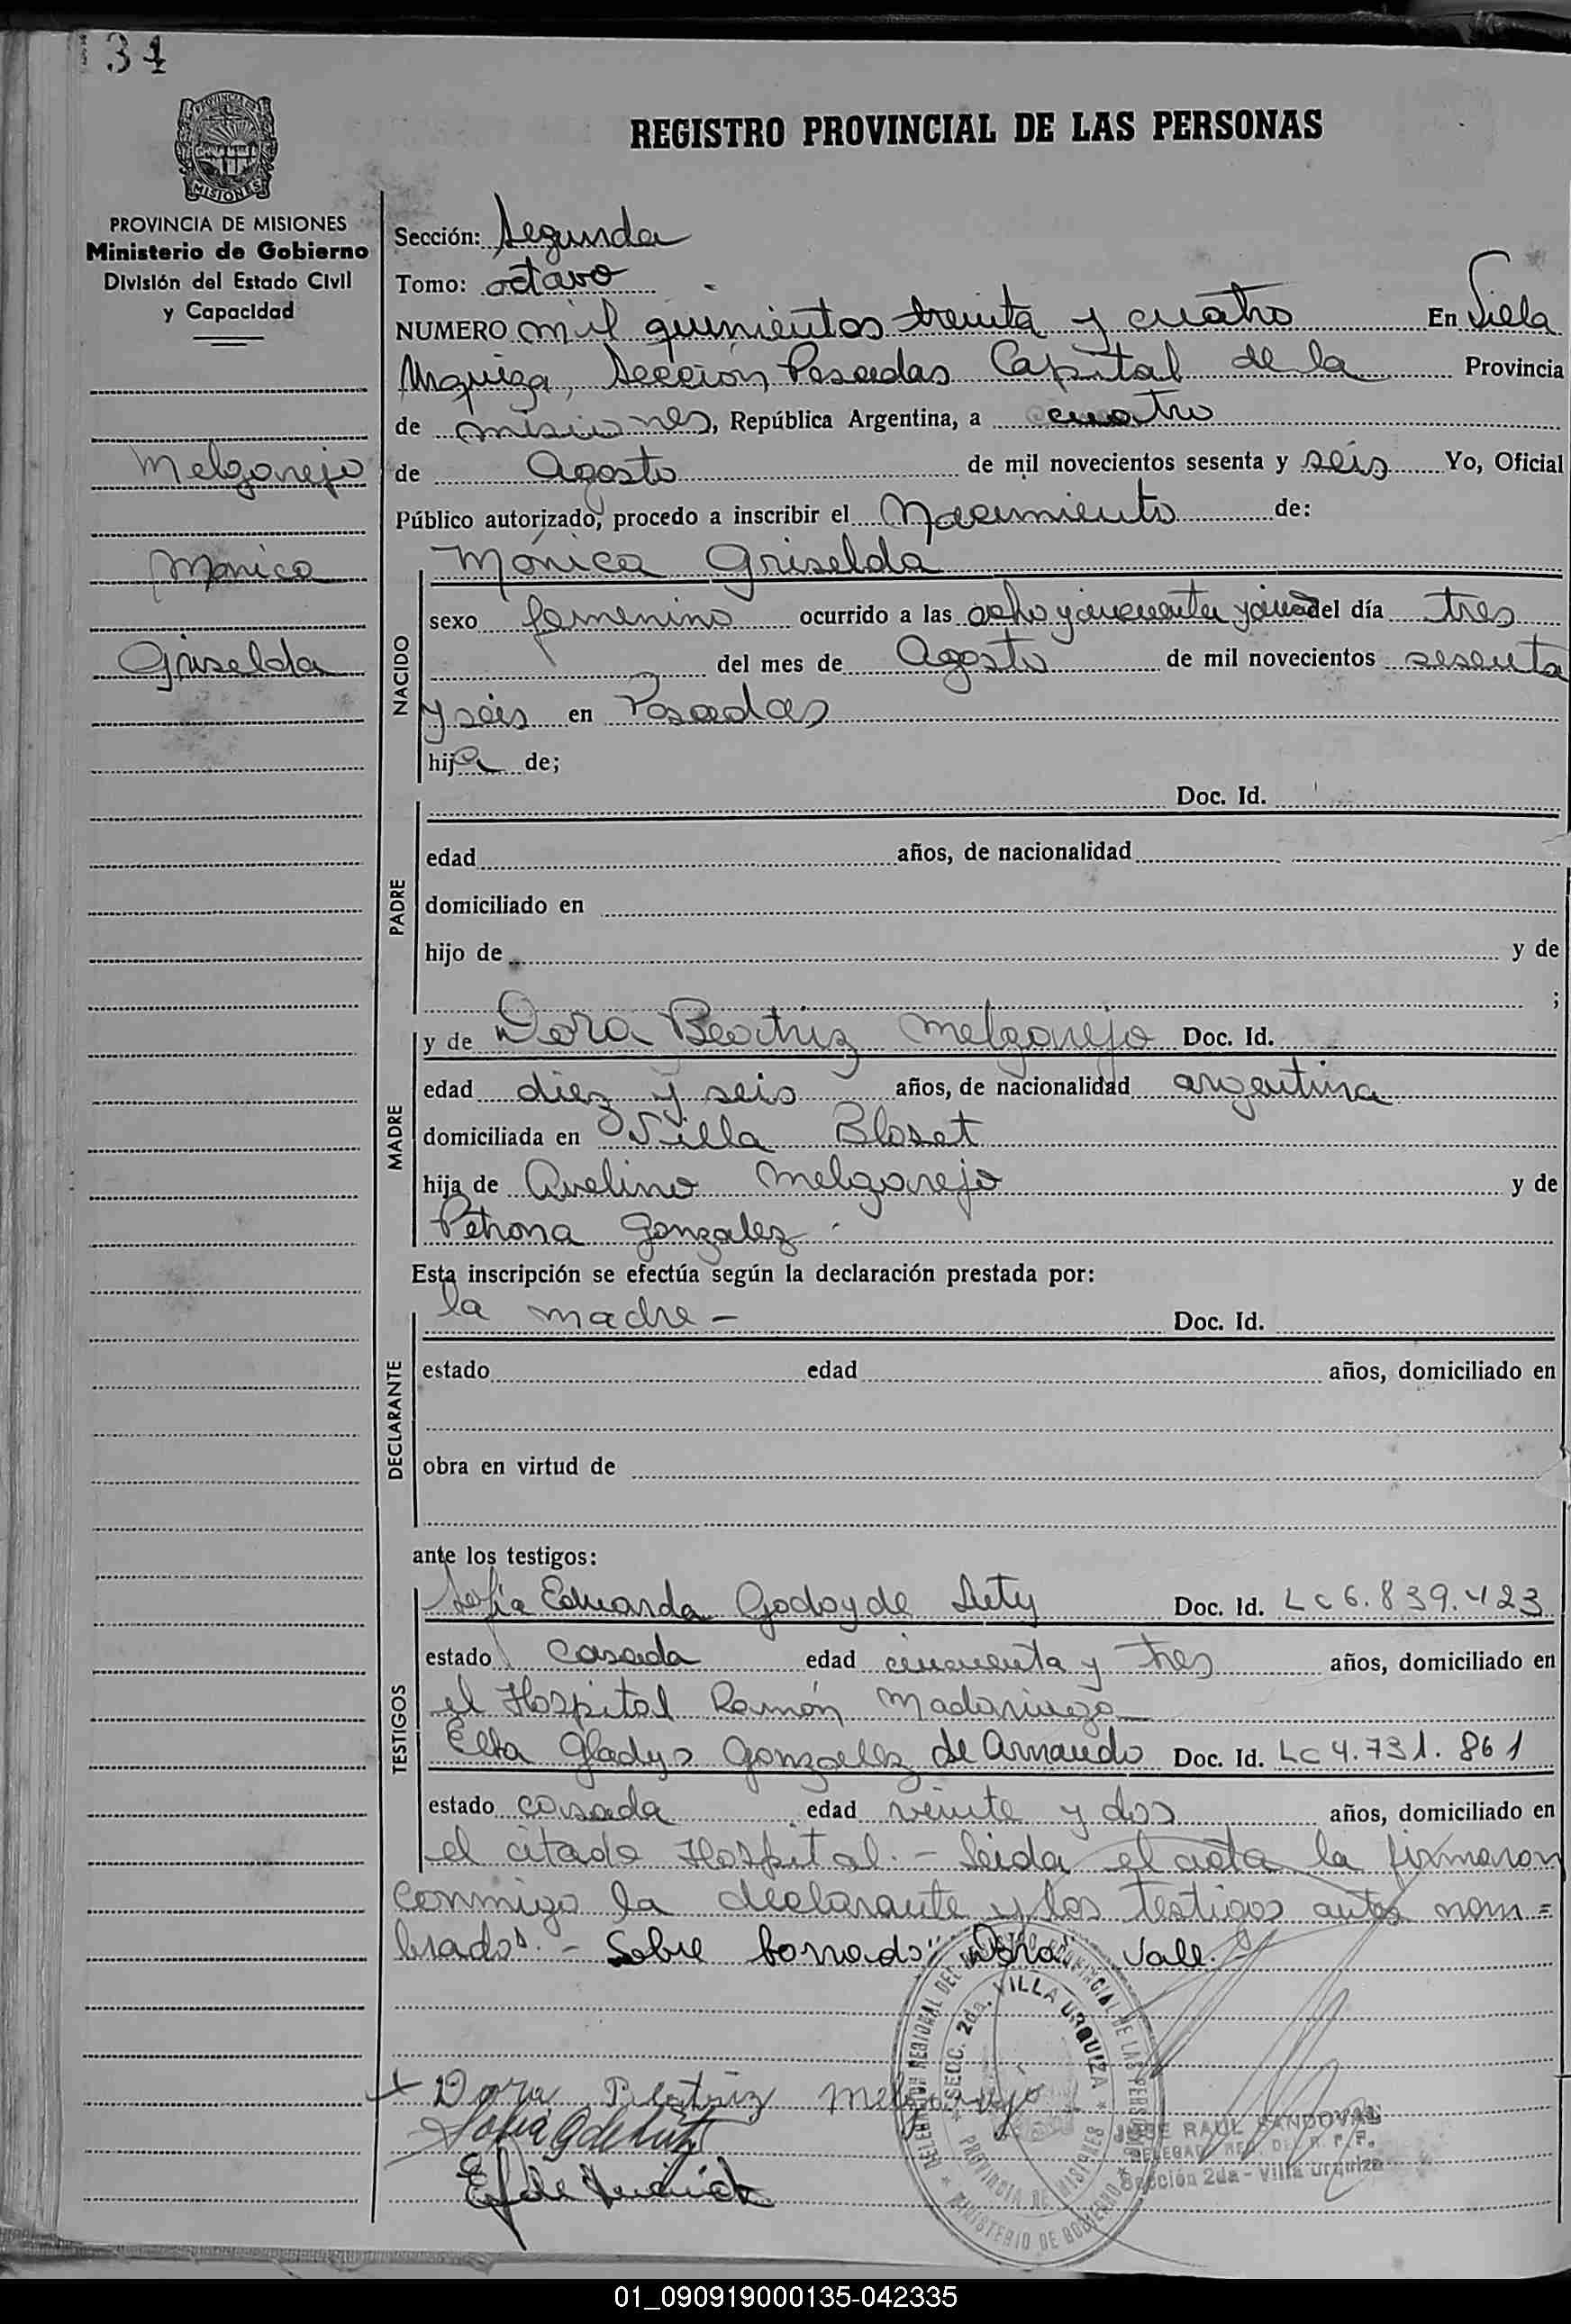 134
REGISTRO PROVINCIAL DE LAS PERSONAS
PROVINCIA DE MISIONES
Ministerio de Gobierno
División del Estado Civil
y Capacidad
Melgarejo
Monica
Griselda
Sección: Segunda
Tomo: octavo
NUMERO mil quinientos treinta y cuatro En Villa
Urquiza, Sección Posadas Capital de la Provincia
de misiones, República Argentina, a cuatro
de Agosto de mil novecientos sesenta y seis Yo, Oficial
Público autorizado, procedo a inscribir el Nacimiento de:
NACIDO
Mónica Griselda
sexo femenino ocurrido a las ocho y cincuenta y cinco del día tres
del mes de Agosto de mil novecientos sesenta
y seis en Posadas
hija de;
PADRE
Doc. Id.
edad años, de nacionalidad
domiciliado en
hijo de y de
;
MADRE
y de Dora Beatriz Melgarejo Doc. Id.
edad diez y seis años, de nacionalidad argentina
domiciliada en Villa Bloset
hija de Avelino Melgarejo y de
Petrona Gonzalez
Esta inscripción se efectúa según la declaración prestada por:
DECLARANTE
la madre - Doc. Id.
estado edad años, domiciliado en
obra en virtud de
ante los testigos:
TESTIGOS
Sofía Eduarda Godoy de Doc. Id. LC 6.839.423
estado casada edad cincuenta y tres años, domiciliado en
el Hospital Ramón Madariaga
Gladys Gonzalez de Doc. Id. LC 4.731.861
estado casada edad veinte y dos años, domiciliado en
el citado Hospital. - Leida el acta la firmaron
conmigo la declarante y los testigos antes nom=
brados. - Sobre borrado "Dora" Vale.
DELEGACION REGIONAL DEL REGISTRO PROVINCIAL DE LAS PERSONAS
SECC. 2da. VILLA URQUIZA
PROVINCIA DE MISIONES
MINISTERIO DE GOBIERNO
Dora Beatriz Melgarejo
Sofia G de
JOSE RAUL SANDOVAL
DELEGADO REG. DEL R. P. P.
Sección 2da - Villa Urquiza
01_090919000135-042335